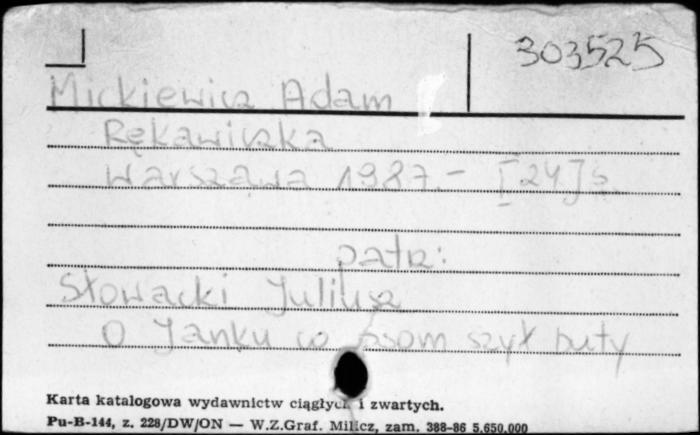 303525
Mickiewicz Adam
Rękawiczka
Warszawa 1987.- [24] s.
patrz:
Słowacki Juliusz
O Janku co psom szył buty
Karta katalogowa wydawnictw ciągłych i zwartych.
Pu-B-144, z. 228/DW/ON — W.Z.Graf. Milicz, zam. 388-86 5.650.000